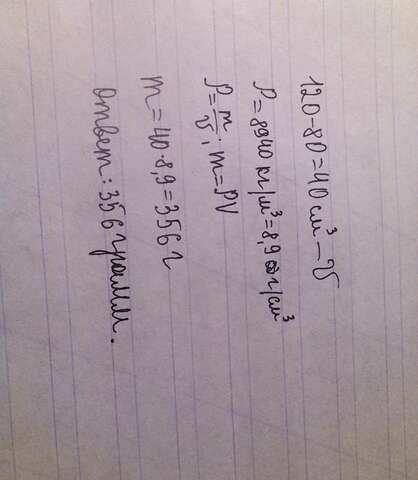 120-80=40см³-V
ρ=8940кг/м³=8,9 г/см³
ρ=m/V; m=ρV
m=40·8,9=356г
Ответ: 356 грамм.